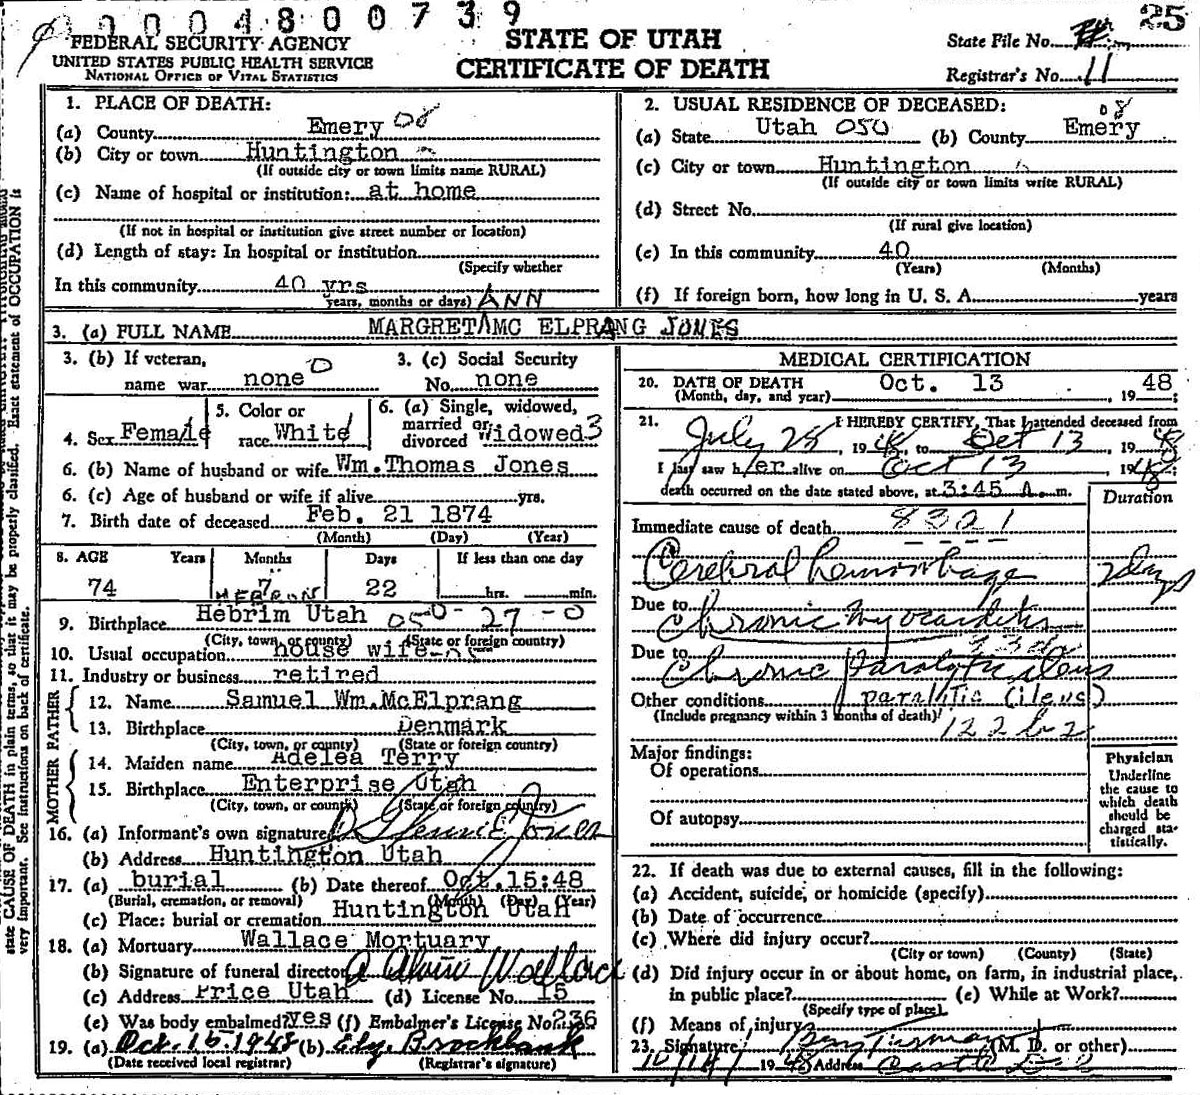 00004800739
25
FEDERAL SECURITY AGENCY
UNITED STATES PUBLIC HEALTH SERVICE
NATIONAL OFFICE OF VITAL STATISTICS
STATE OF UTAH
CERTIFICATE OF DEATH
State File No.
Registrar's No. 11
state CAUSE OF DEATH in plain terms, so that it may be properly classified. Exact statement of OCCUPATION is
very important. See instructions on back of certificate.
1. PLACE OF DEATH:
(a) County Emery 08
(b) City or town Huntington
(If outside city or town limits name RURAL)
(c) Name of hospital or institution: at home
(If not in hospital or institution give street number or location)
(d) Length of stay: In hospital or institution
(Specify whether
In this community 40 yrs
years, months or days)
2. USUAL RESIDENCE OF DECEASED:
08
(a) State Utah 050 (b) County Emery
(c) City or town Huntington
(If outside city or town limits write RURAL)
(d) Street No.
(If rural give location)
(e) In this community 40
(Years) (Months)
(f) If foreign born, how long in U. S. A. years
ANN
3. (a) FULL NAME MARGRET MC ELPRANG JONES
3. (b) If veteran, name war none 0
3. (c) Social Security No. none
4. Sex Female
5. Color or race White 1
6. (a) Single, widowed, married or divorced widowed 3
6. (b) Name of husband or wife Wm. Thomas Jones
6. (c) Age of husband or wife if alive yrs.
7. Birth date of deceased Feb. 21 1874
(Month) (Day) (Year)
8. AGE Years Months Days If less than one day
74 7 22 hrs. min.
HEBRON
9. Birthplace Hebrim Utah 050-27-0
(City, town, or county) (State or foreign country)
10. Usual occupation house wife
11. Industry or business retired
FATHER
12. Name Samuel Wm. McElprang
13. Birthplace Denmark
(City, town, or county) (State or foreign country)
MOTHER
14. Maiden name Adelea Terry
15. Birthplace Enterprise Utah
(City, town, or county) (State or foreign country)
16. (a) Informant's own signature Jones
(b) Address Huntington Utah
17. (a) burial (b) Date thereof Oct. 15:48
(Burial, cremation, or removal) (Month) (Day) (Year)
(c) Place: burial or cremation Huntington Utah
18. (a) Mortuary Wallace Mortuary
(b) Signature of funeral director Wallace
(c) Address Price Utah (d) License No. 15
(e) Was body embalmed? yes (f) Embalmer's License No. 236
19. (a) Oct. 15. 1948 (b) Brockbank
(Date received local registrar) (Registrar's signature)
MEDICAL CERTIFICATION
20. DATE OF DEATH Oct. 13, 1948
(Month, day, and year)
21. I HEREBY CERTIFY, That I attended deceased from
July 28 1948, to Oct 13 1948;
I last saw her alive on Oct 13 1948;
death occurred on the date stated above, at 3:45 A. m.
Duration
Immediate cause of death 8321
Cerebral hemorrhage 2 days
Due to
Chronic myocarditis
Due to
Chronic Paralytic ileus
Other conditions paralitic (ileus)
(Include pregnancy within 3 months of death)
122b2
Major findings:
Of operations
Of autopsy
Physician
Underline the cause to which death should be charged statistically.
22. If death was due to external causes, fill in the following:
(a) Accident, suicide, or homicide (specify)
(b) Date of occurrence
(c) Where did injury occur?
(City or town) (County) (State)
(d) Did injury occur in or about home, on farm, in industrial place,
in public place? (e) While at Work?
(Specify type of place)
(f) Means of injury
23. Signature (M. D. or other)
1948 Address Castle Dale